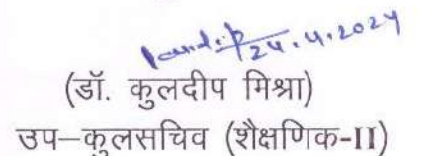 24.4.2024
(डॉ. कुलदीप मिश्रा)
उप–कुलसचिव (शैक्षणिक-II)